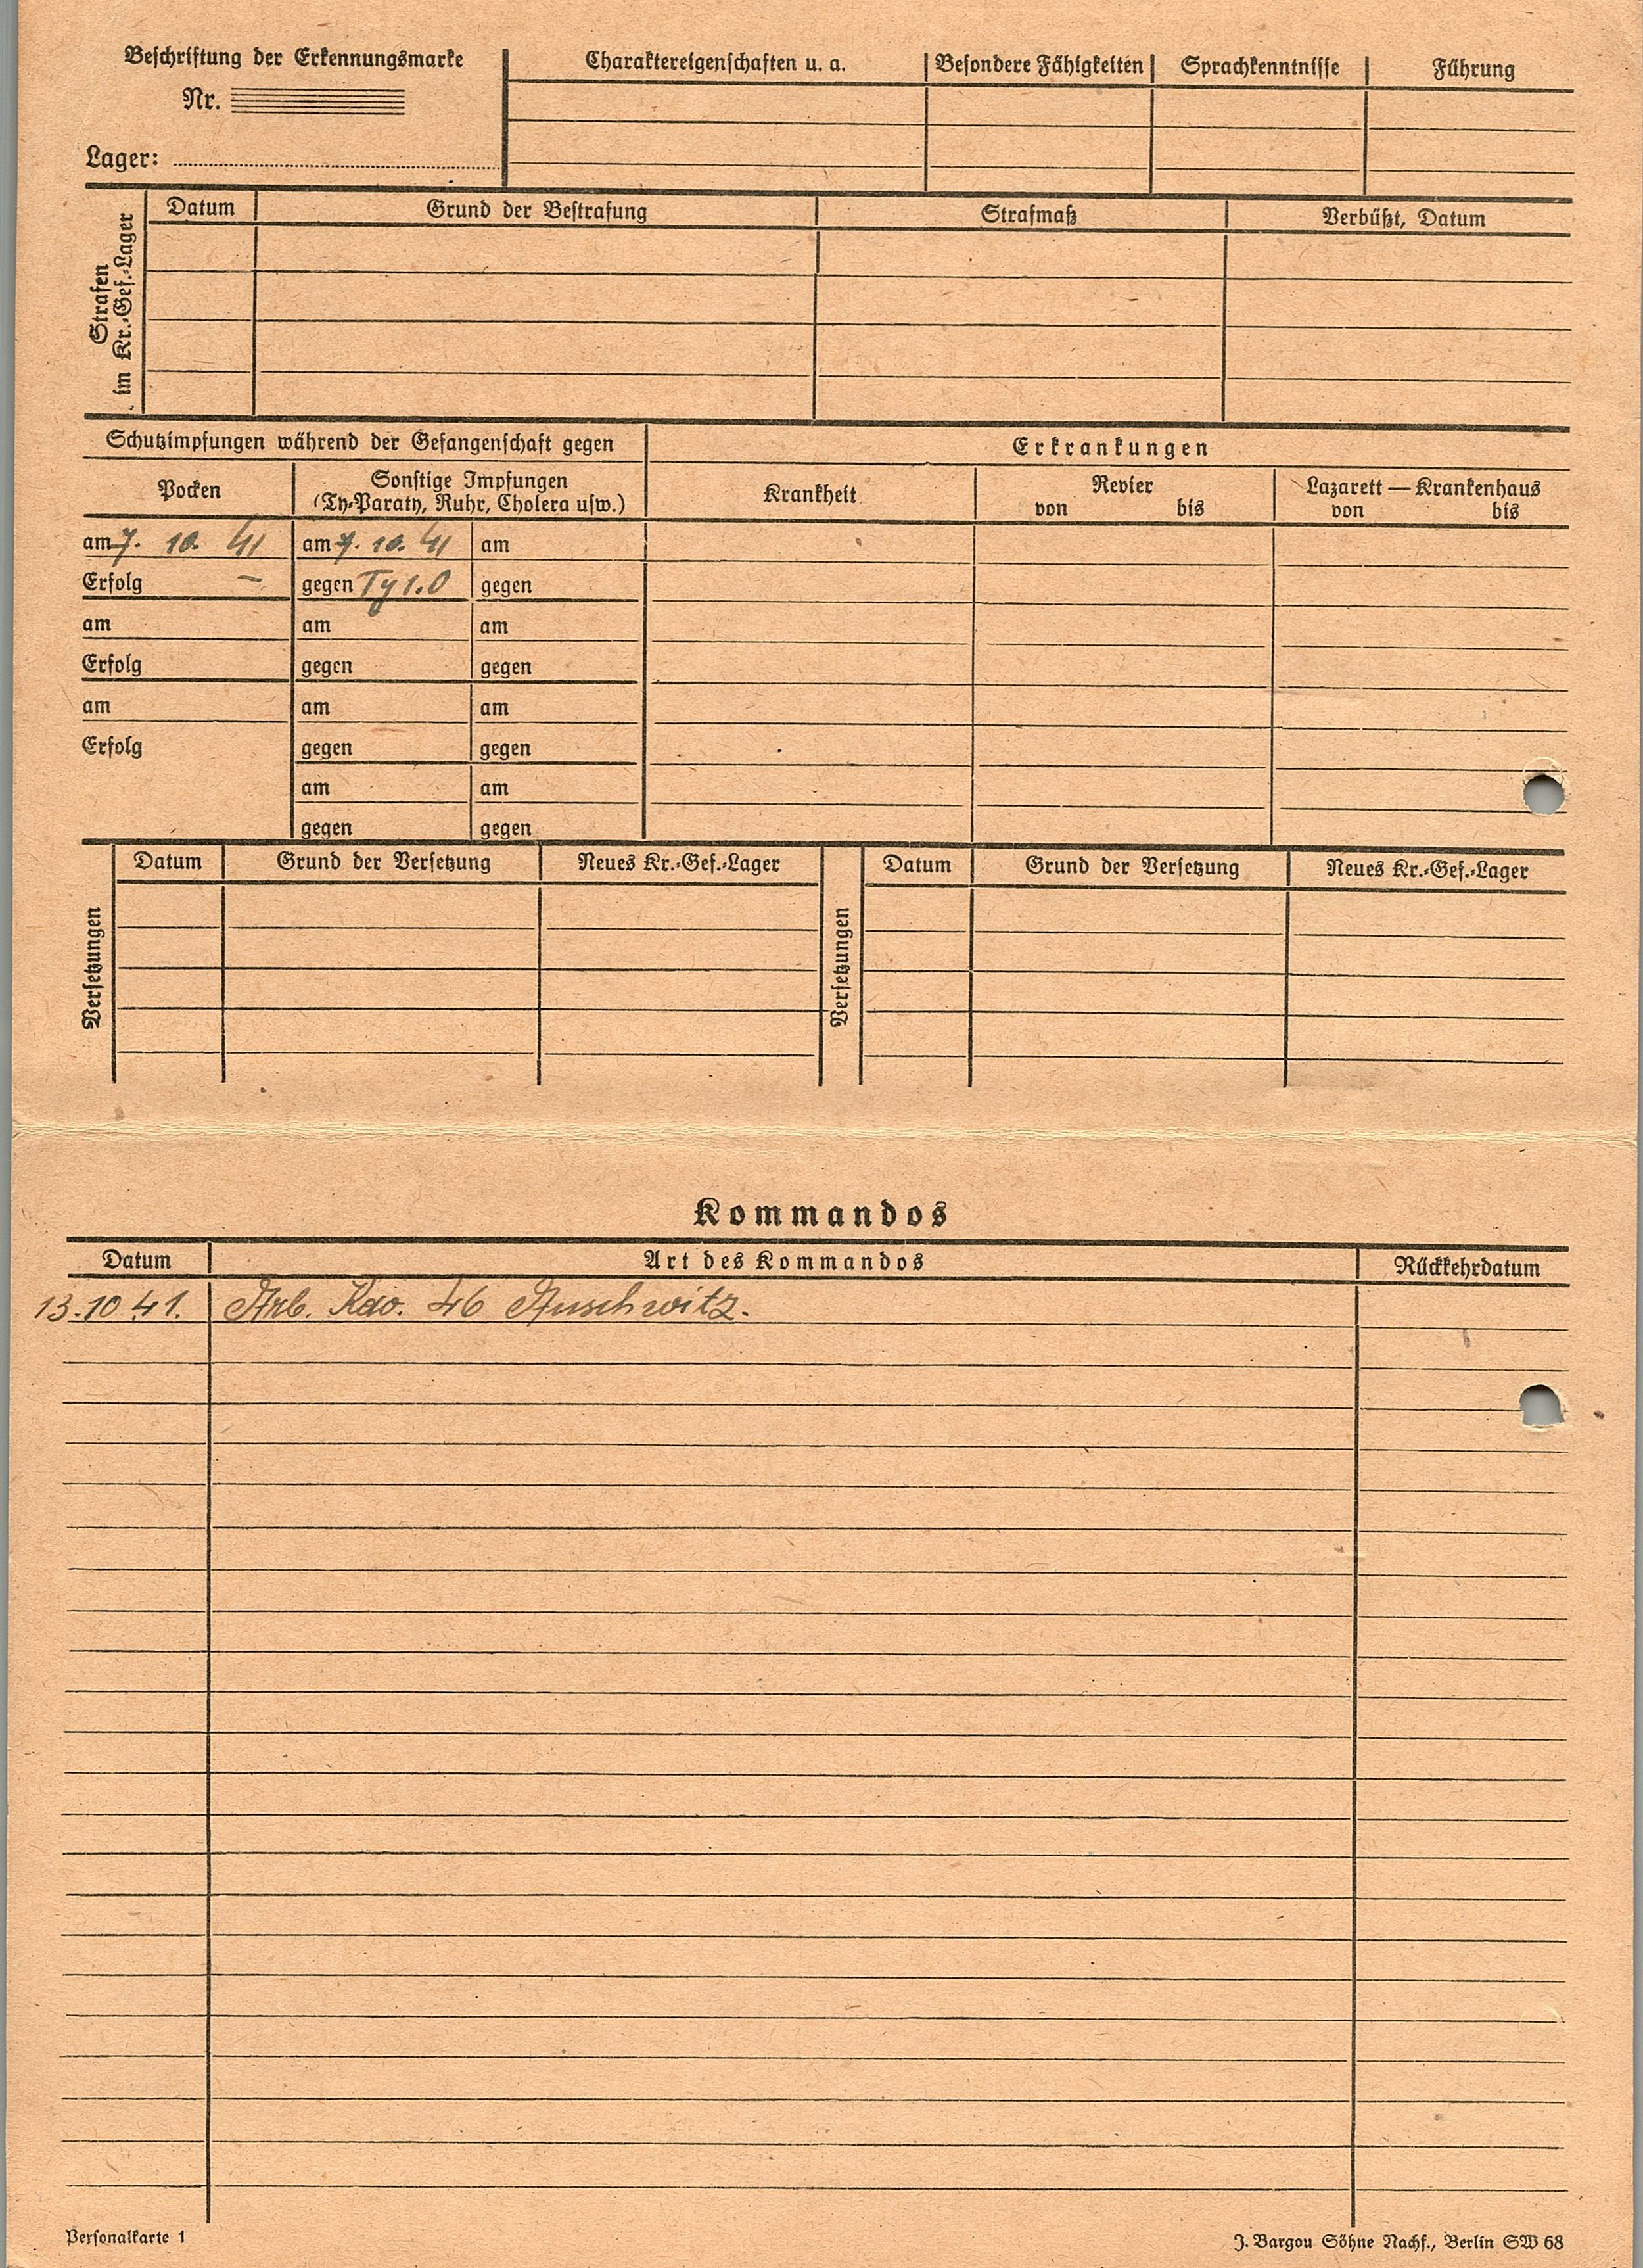 Beschriftung der Erkennungsmarke
Nr.
Lager:
Charaktereigenschaften u. a. Besondere Fähigkeiten Sprachkenntnisse Führung
Strafen
im Kr.-Gef.-Lager
Datum Grund der Bestrafung Strafmaß Verbüßt, Datum
Schutzimpfungen während der Gefangenschaft gegen
Erkrankungen
Pocken
Sonstige Impfungen
(Ty-Paraty, Ruhr, Cholera usw.)
Krankheit
Revier
von bis
Lazarett — Krankenhaus
von bis
am 7. 10. 41 am 7. 10. 41 am
Erfolg – gegen Ty 1.0 gegen
am am am
Erfolg gegen gegen
am am am
Erfolg gegen gegen
am am
gegen gegen
Versetzungen
Datum Grund der Versetzung Neues Kr.-Gef.-Lager
Versetzungen
Datum Grund der Versetzung Neues Kr.-Gef.-Lager
Kommandos
Datum Art des Kommandos Rückkehrdatum
13.10.41. Arb. Kdo. 46 Auschwitz.
Personalkarte 1
J. Bargou Söhne Nachf., Berlin SW 68